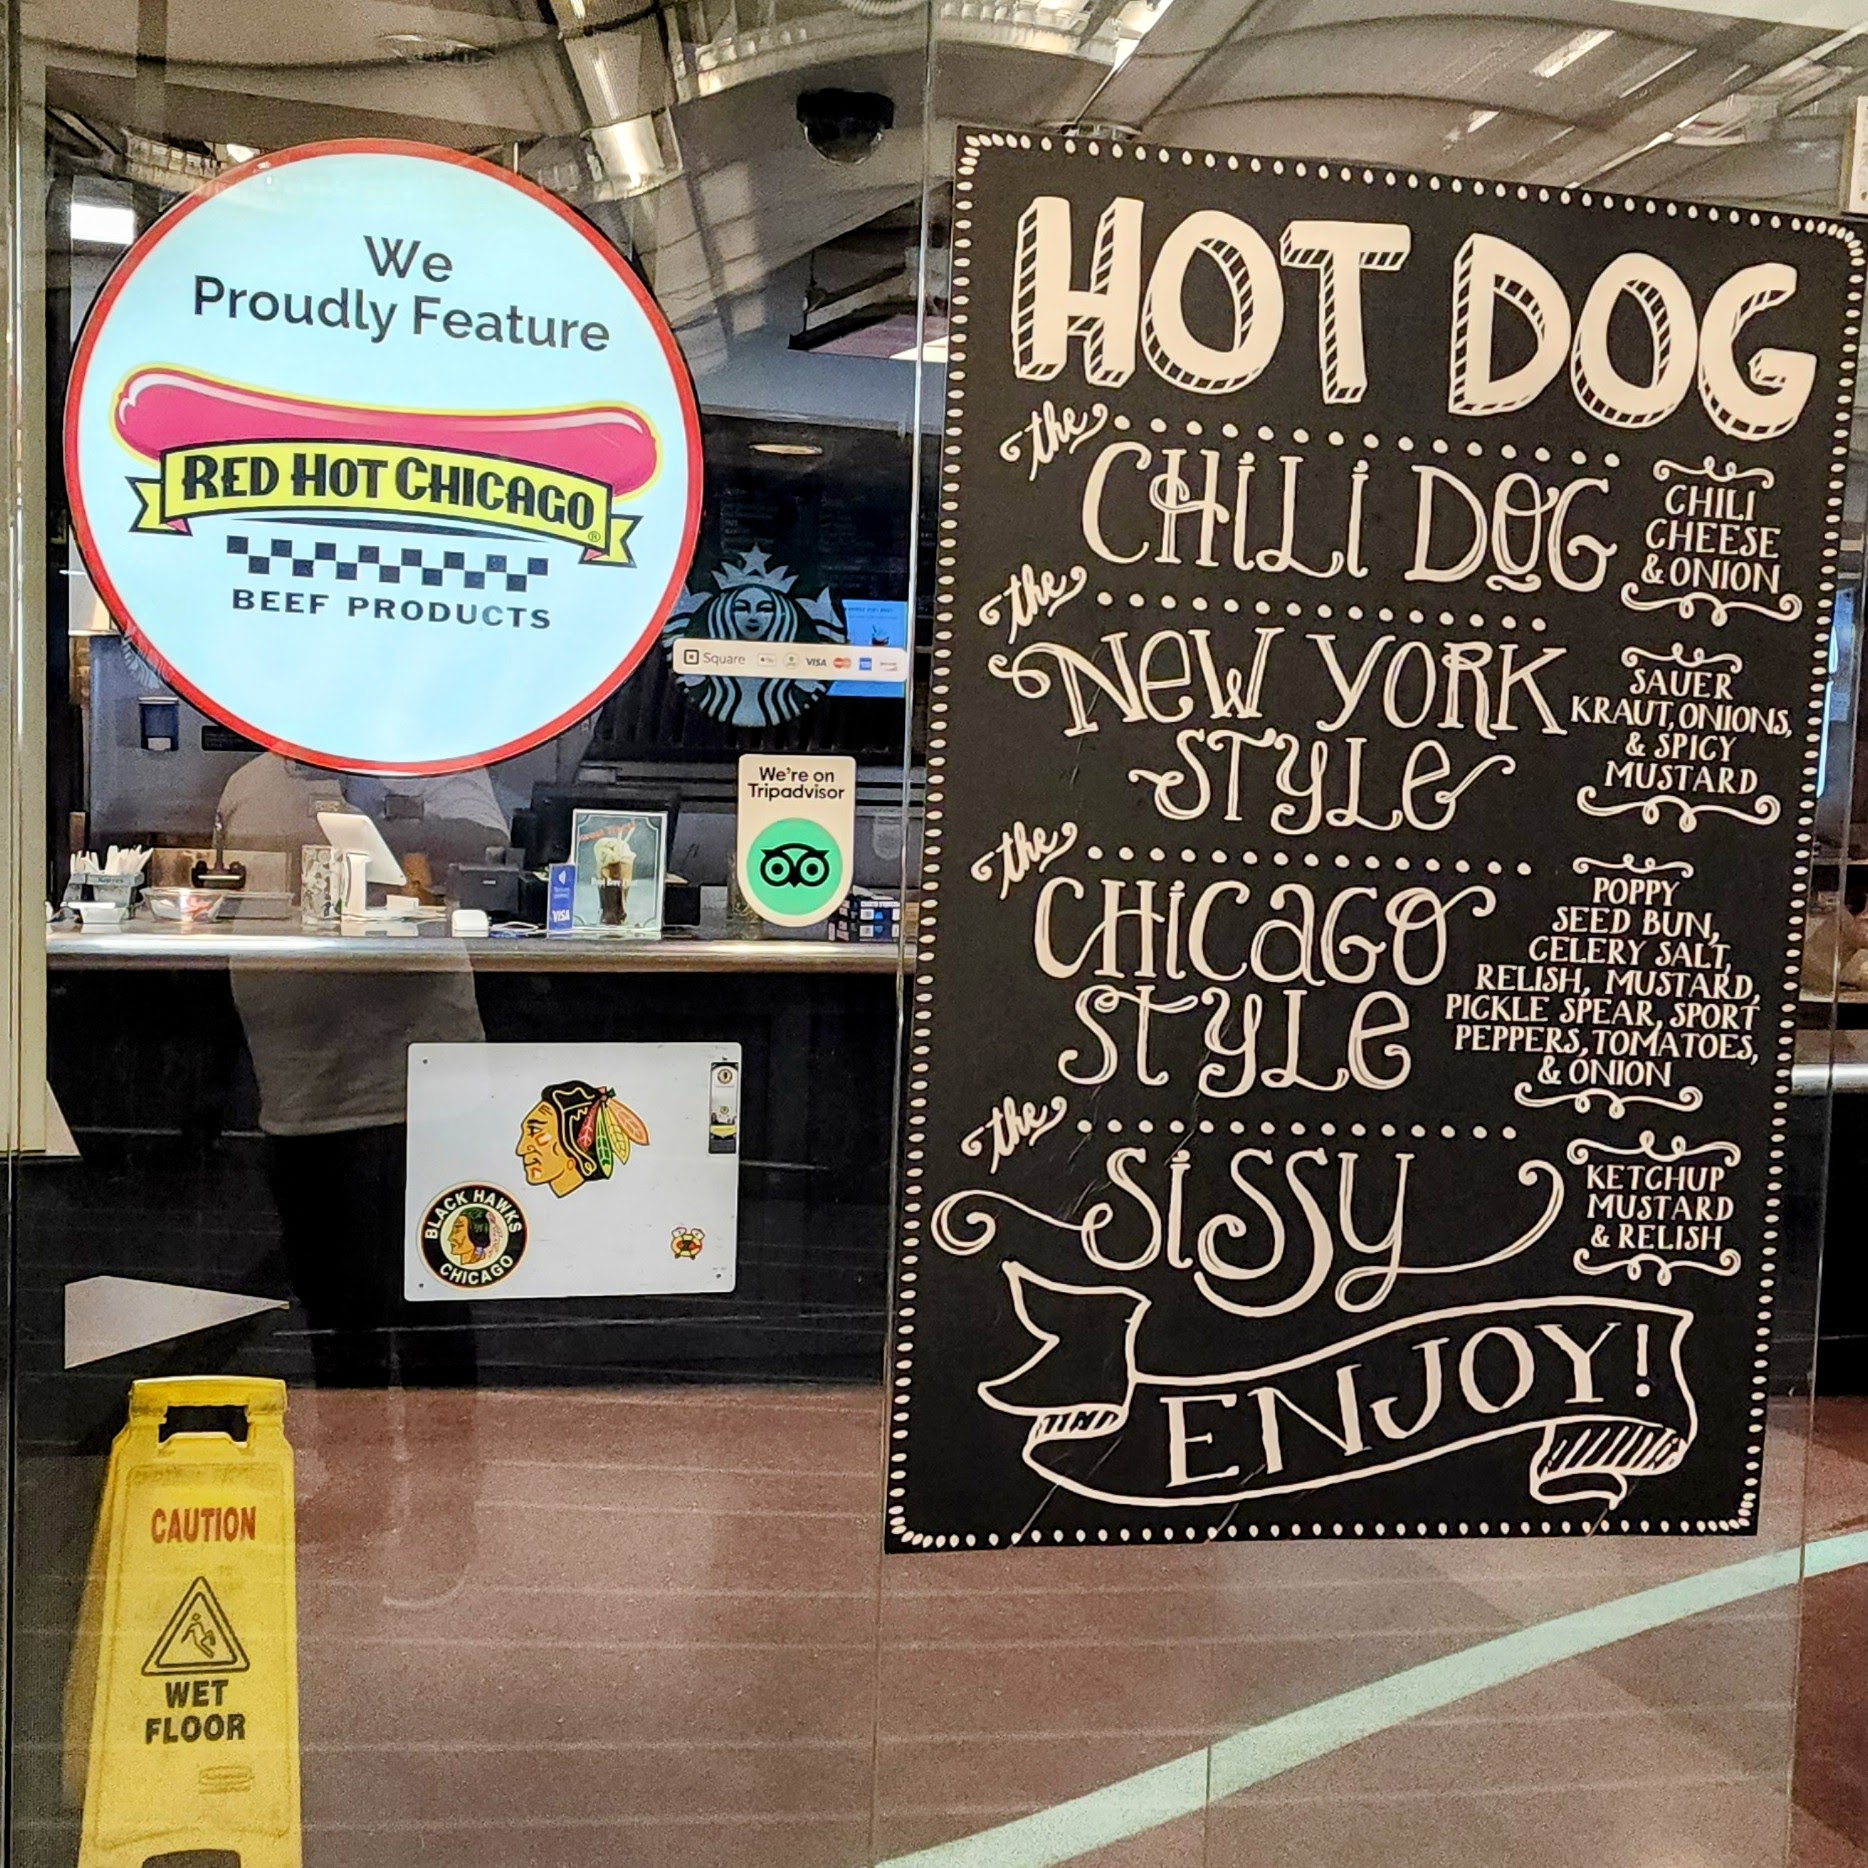 We
Proudly Feature
RED HOT CHICAGO®
BEEF PRODUCTS
Square
VISA
We're on
Tripadvisor
VISA
BLACK HAWKS
CHICAGO
CAUTION
WET
FLOOR
HOT DOG
the
CHILI DOG
CHILI
CHEESE
& ONION
the
NEW YORK
STYLE
SAUER
KRAUT, ONIONS,
& SPICY
MUSTARD
the
CHICAGO
STYLE
POPPY
SEED BUN,
CELERY SALT,
RELISH, MUSTARD,
PICKLE SPEAR, SPORT
PEPPERS, TOMATOES,
& ONION
the
SISSY
KETCHUP
MUSTARD
& RELISH
ENJOY!